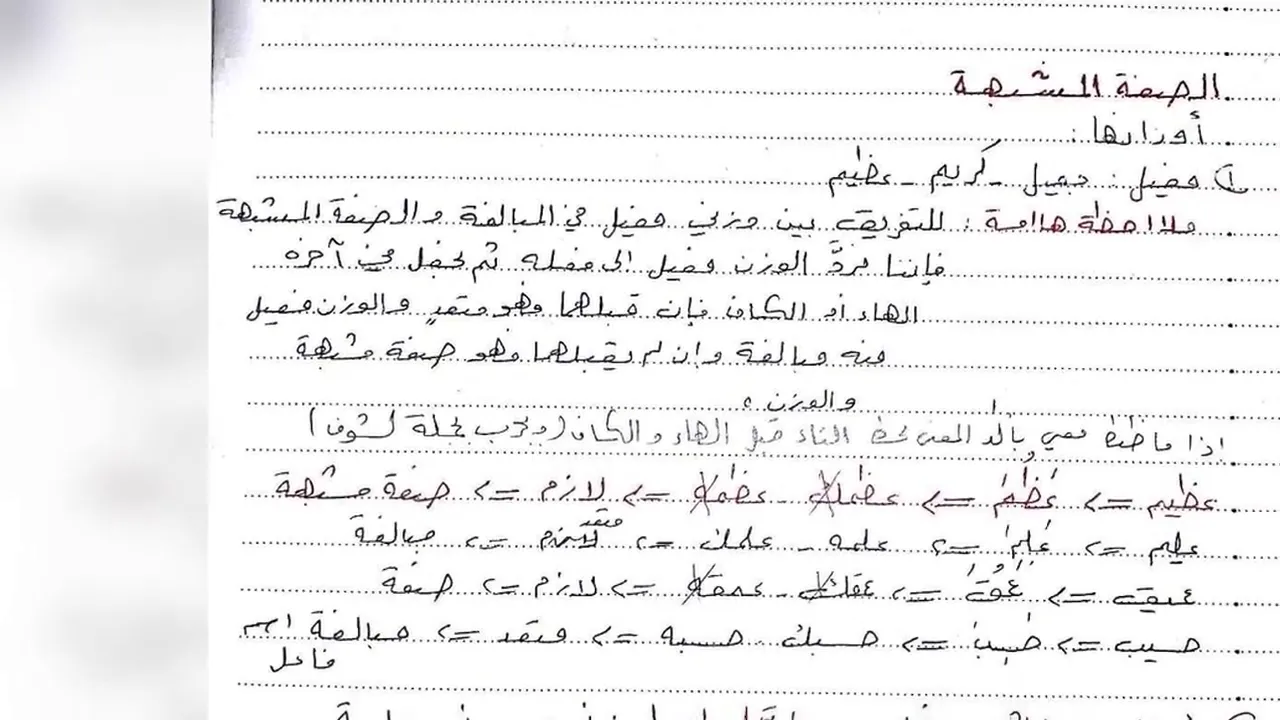 الصفة المشبهة
أوزانها :
① فعيل : جميل - كريم - عظيم
ملاحظة هامة : للتفريق بين وزني فعيل في المبالغة و الصفة المشبهة
فإننا نردَّ الوزن فعيل الى فعله ثم نجعل في آخره
الهاء أو الكاف فإن قبلهما فهو متعدٍ والوزن فعيل
منه مبالغة وان لم يقبلهما فهو صفة مشبهة
والوزن
اذا ما ظبط معي بالمعنى بحط التاء قبل الهاء و الكاف (وبجرب بجملة لشوف)
عظيم => عَظُمَ => عظمك - عظمه => لازم => صفة مشبهة
عليم => عَلِمَ => علمه - علمك => متعد => مبالغة
عميق => عَمُقَ => عمقك - عمقه => لازم => صفة
حسيب => حَسِبَ => حسبك حسبه => متعد => مبالغة اسم
فاعل